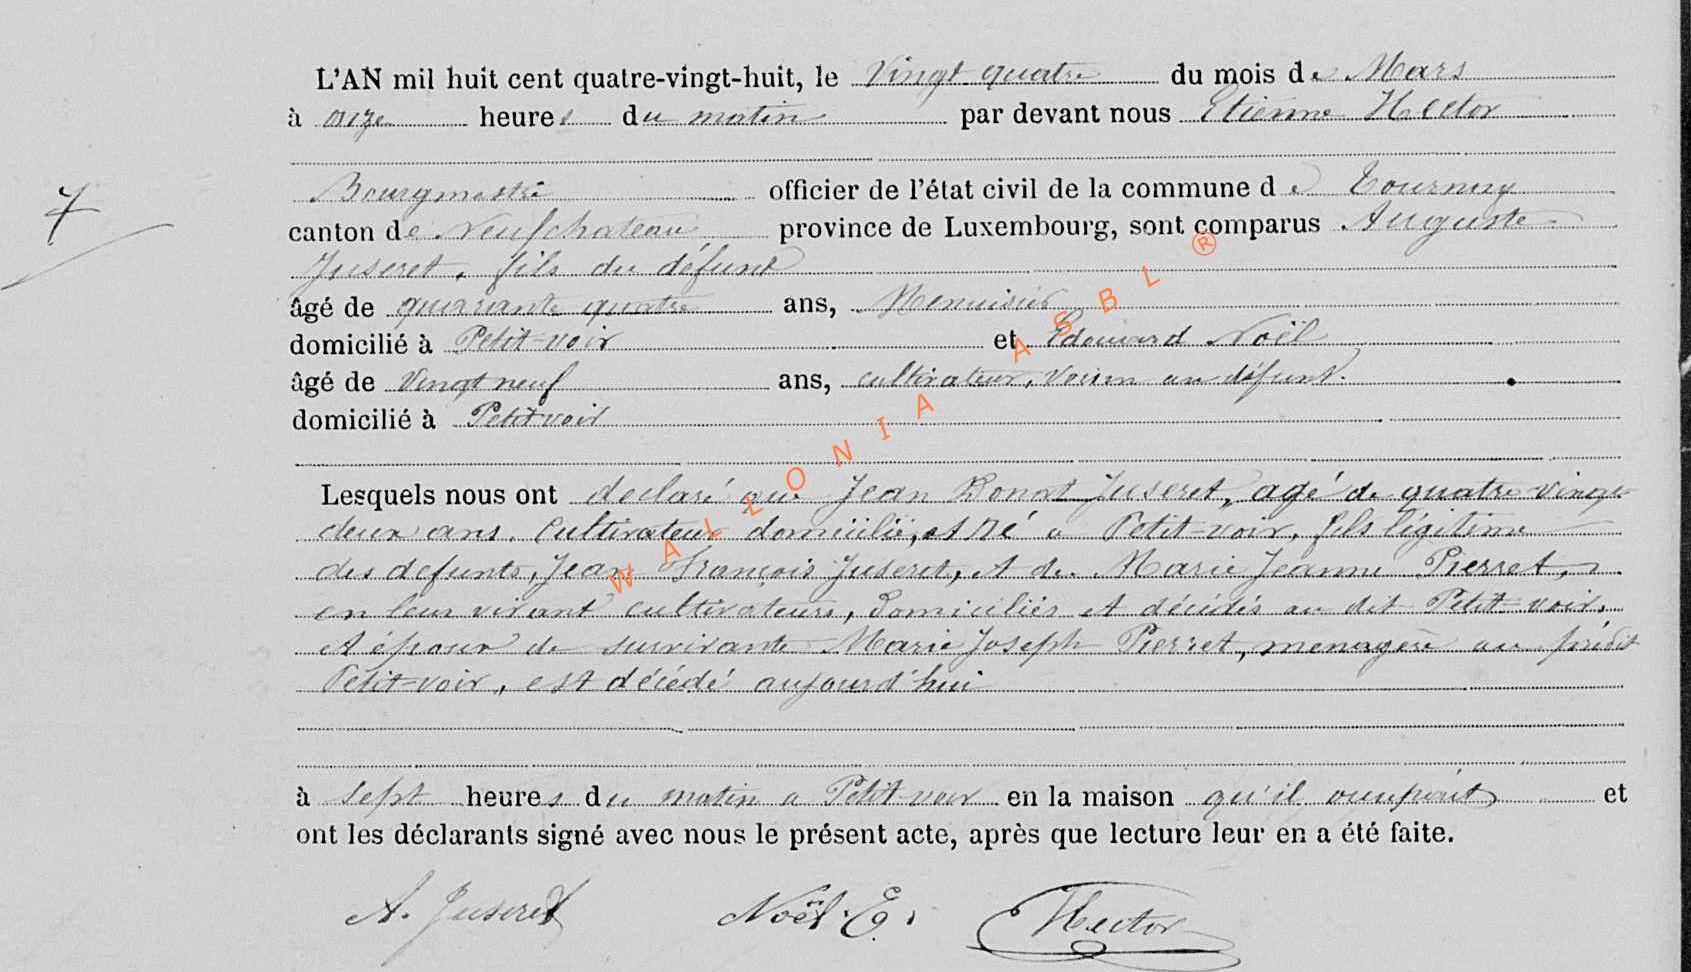 L'AN mil huit cent quatre-vingt-huit, le Vingt quatre du mois de Mars
à onze heures du matin par devant nous Etienne Hector
Bourgmestre officier de l'état civil de la commune de Tournay
7
canton de Neufchateau province de Luxembourg, sont comparus Auguste
Juseret, fils du défunt
âgé de quarante quatre ans, Menuisier
domicilié à Petit-voir et Edouard Noël
âgé de Vingt neuf ans, cultivateur, voisin au défunt.
domicilié à Petitvoir
Lesquels nous ont declaré que Jean Donat Juseret, agé de quatre vingt
deux ans, Cultivateur domicilié, et né a Petit-voir, fils légitime
des defunts, Jean François Juseret, et de Marie Jeanne Pierret,
en leur vivant cultivateurs, domiciliés et décédés au dit Petit-voir,
et époux de survivante Marie Joseph Pierret, menagère au prédit
Petit-voir, est décédé aujourd'hui
à sept heures du matin a Petit-voir en la maison qu'il occupait et
ont les déclarants signé avec nous le présent acte, après que lecture leur en a été faite.
A. Juseret Noël. E. Hector
WALLONIA ASBL ®